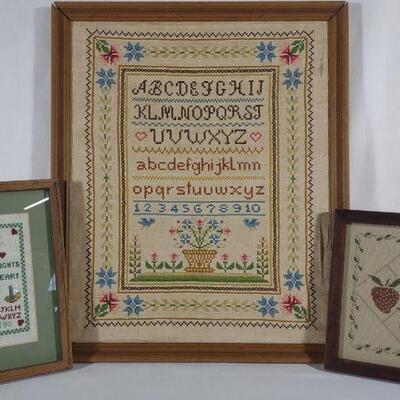 ABCDEFGHIJ
KLMNOPQRST
UVWXYZ
abcdefghijklmn
opqrstuvwxyz
12345678910
GHTS
EART
JKLM
WXYZ